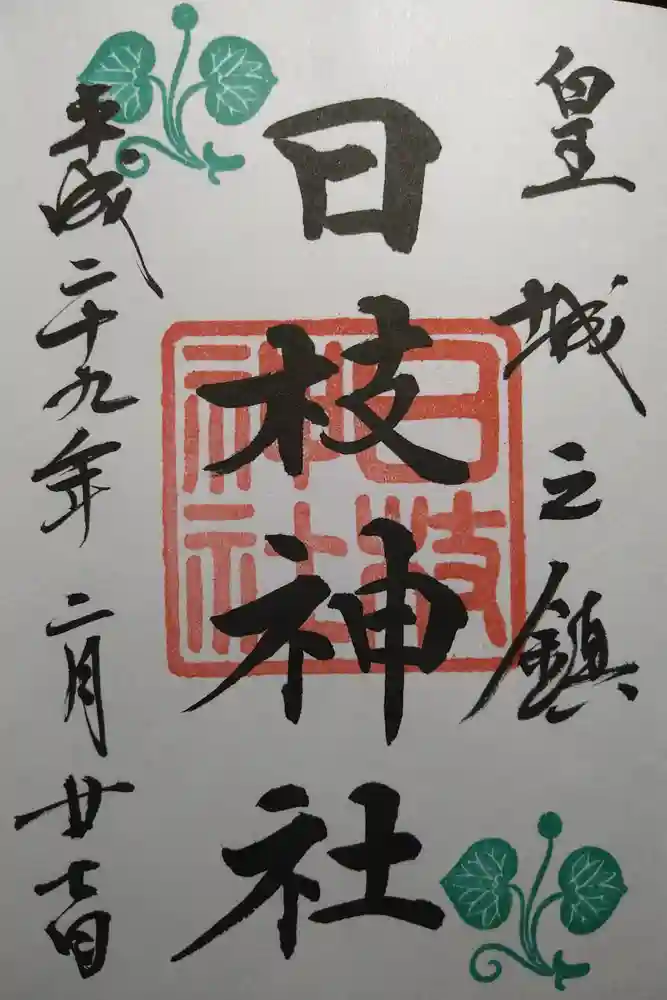 皇城之鎮
日枝神社
日枝神社
平成二十九年二月廿七日